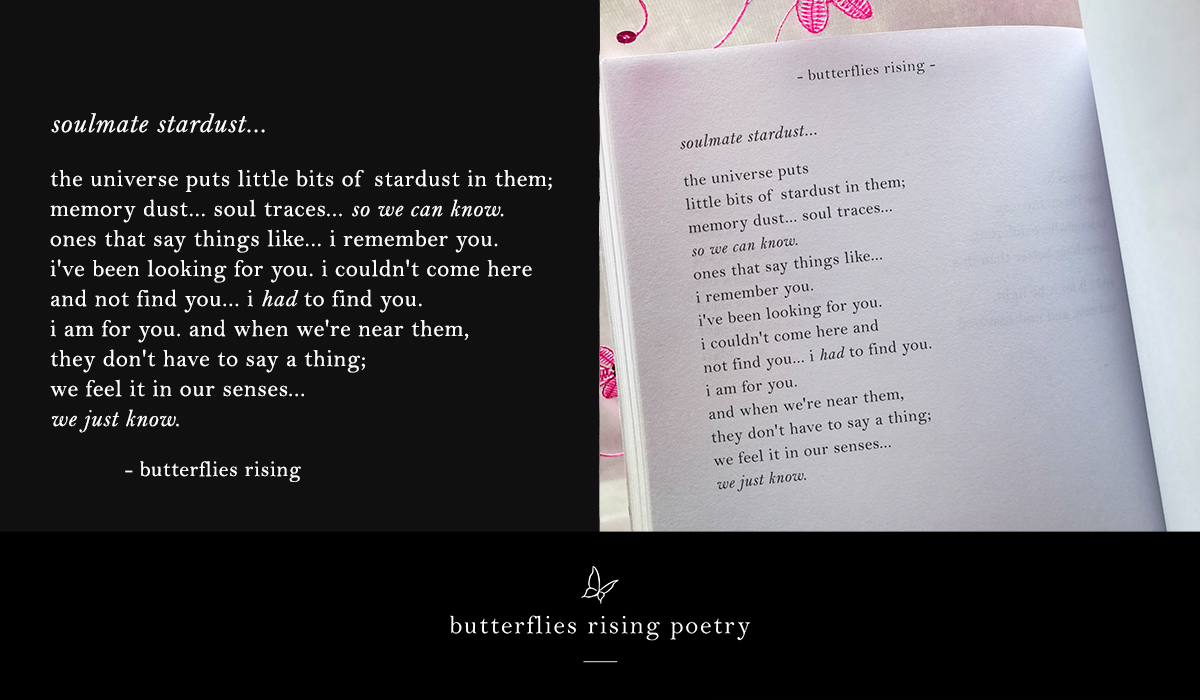 soulmate stardust...
the universe puts little bits of stardust in them;
memory dust... soul traces... so we can know.
ones that say things like... i remember you.
i've been looking for you. i couldn't come here
and not find you... i had to find you.
i am for you. and when we're near them,
they don't have to say a thing;
we feel it in our senses...
we just know.
– butterflies rising
– butterflies rising –
soulmate stardust...
the universe puts
little bits of stardust in them;
memory dust... soul traces...
so we can know.
ones that say things like...
i remember you.
i've been looking for you.
i couldn't come here and
not find you... i had to find you.
i am for you.
and when we're near them,
they don't have to say a thing;
we feel it in our senses...
we just know.
butterflies rising poetry